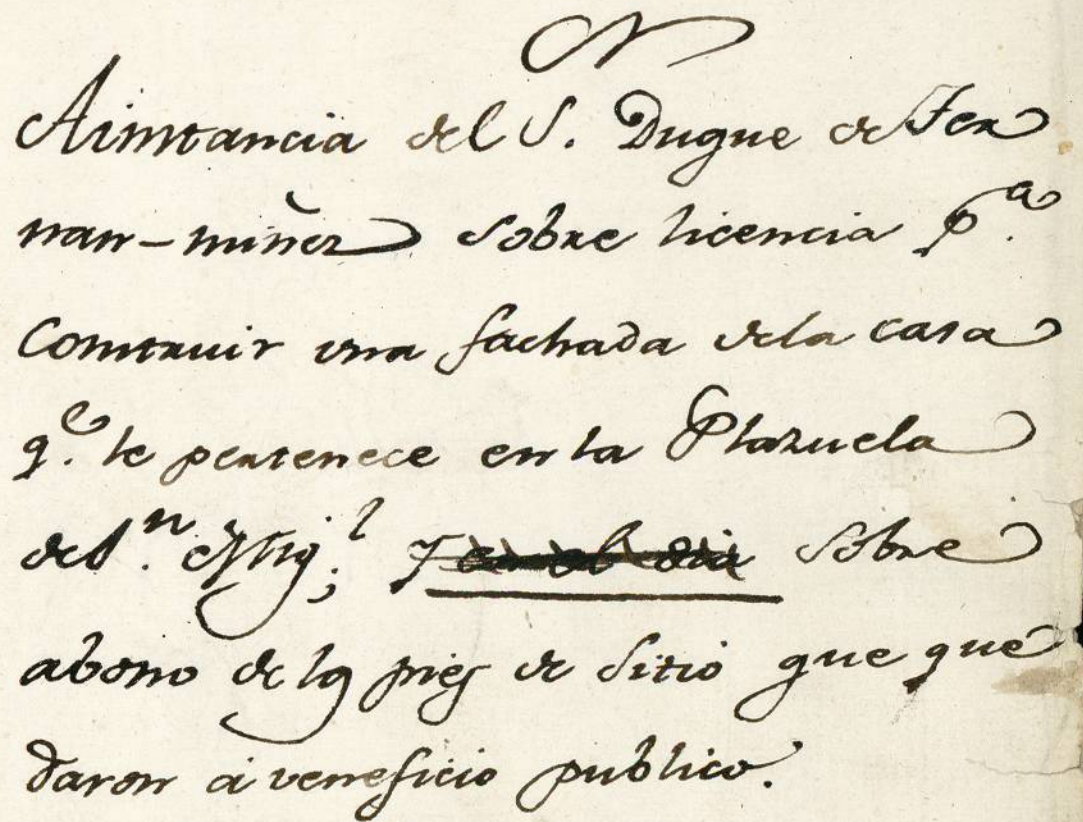 A instancia del S. Duque de Fer
nan-nuñez sobre licencia p.ª
Construir una fachada dela casa
q.e le pertenece en la Plazuela
de S.n Mig.l y sobre
abono de los pies de sitio que que
daron a veneficio publico.